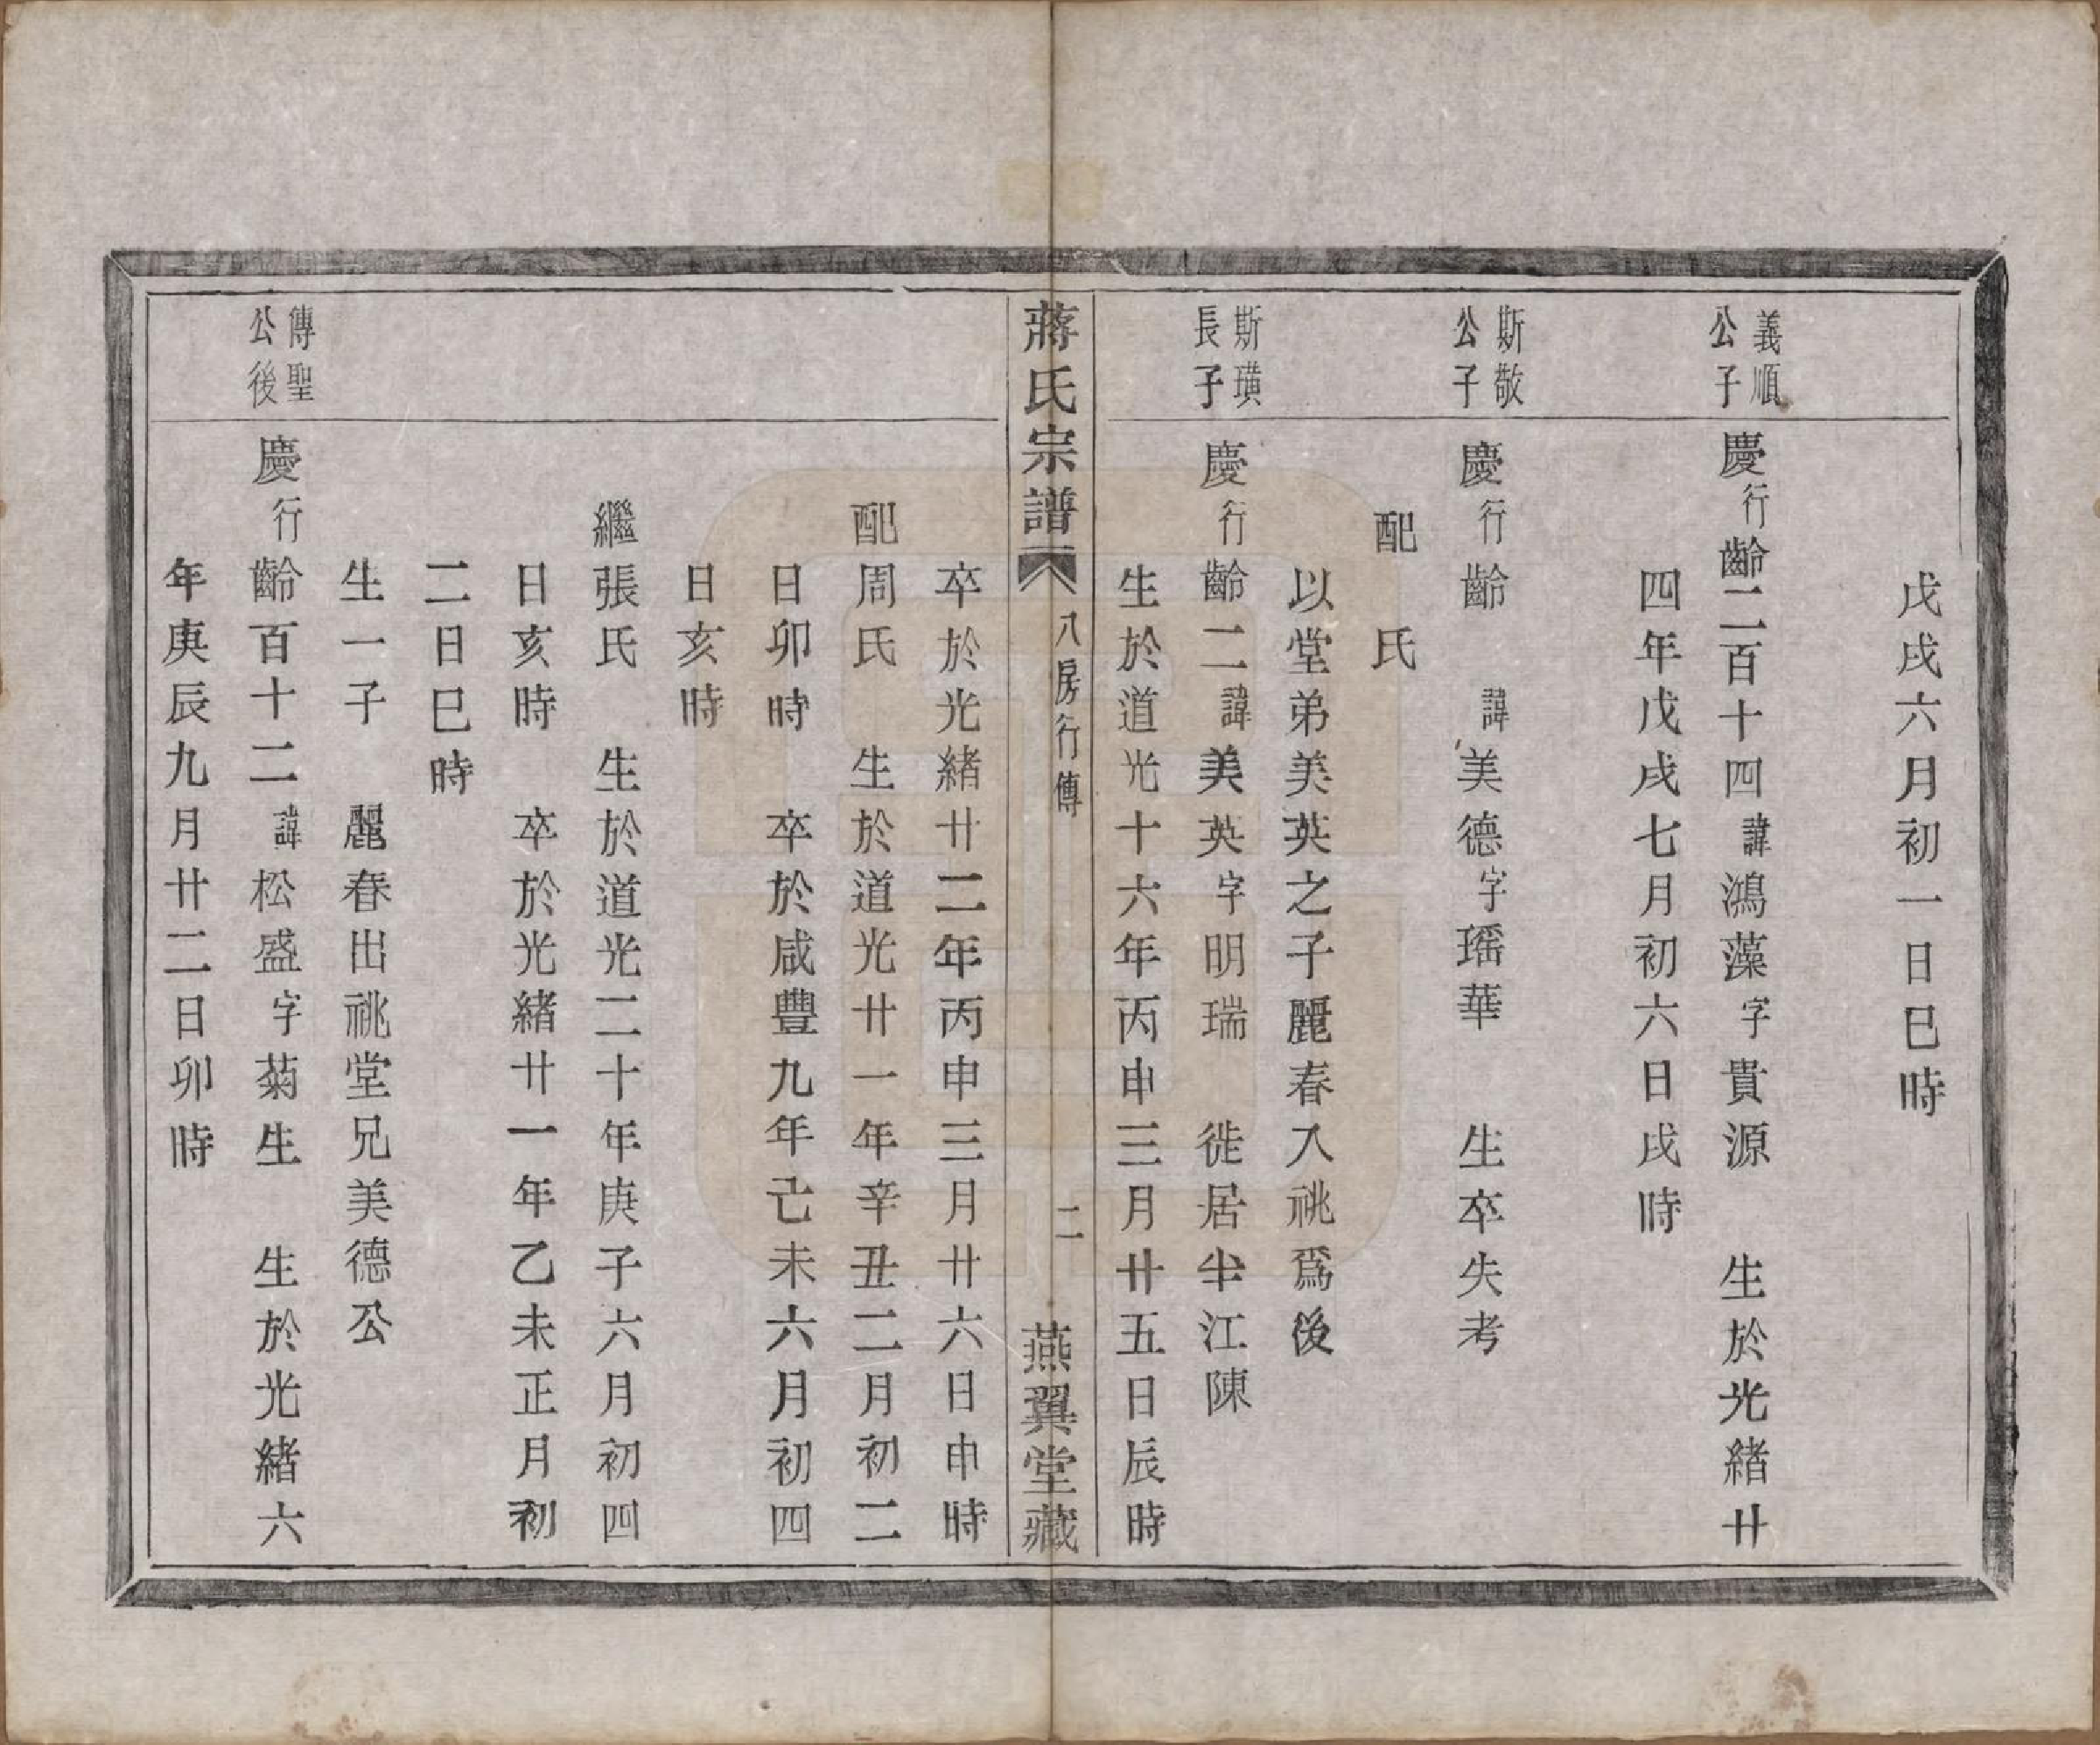 戊戌六月初一日巳時
義順
公子
慶行齡二百十四諱鴻藻字貴源　生於光緒廿
四年戊戌七月初六日戌時
斯敬
公子
慶行齡　諱美德字瑤華　生卒失考
配　氏
以堂弟美英之子麗春入祧爲後
斯璜
長子
慶行齡二諱美英字明瑞　徙居半江陳
生於道光十六年丙申三月廿五日辰時
蔣氏宗譜　八房行傳　二　燕翼堂藏
卒於光緒廿二年丙申三月廿六日申時
配周氏　生於道光廿一年辛丑二月初二
日卯時　卒於咸豐九年己未六月初四
日亥時
繼張氏　生於道光二十年庚子六月初四
日亥時　卒於光緒廿一年乙未正月初
二日巳時
生一子　麗春出祧堂兄美德公
傳聖
公後
慶行齡百十二諱松盛字菊生　生於光緒六
年庚辰九月廿二日卯時